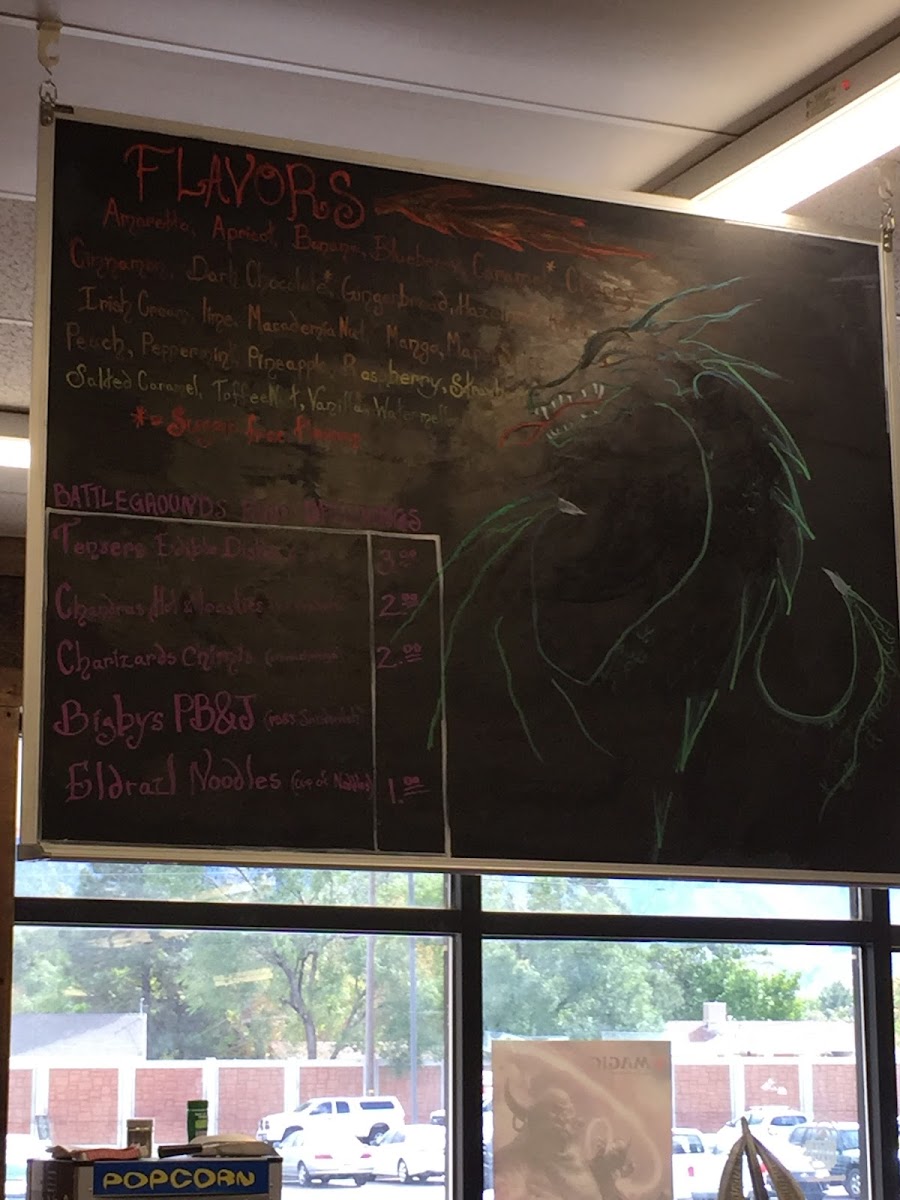 FLAVORS
Amaretto, Apricot, Banana, Blueberry, Caramel*
Cinnamon, Dark Chocolate*, Gingerbread,
Irish Cream, lime, Macadamia Nut, Mango,
Peach, Peppermint, Pineapple, Raspberry,
Salted Caramel, Toffee Nut, Vanilla,
*= Sugar free
BATTLEGROUNDS
Tensers Edible 3.00
Chandras Hot 2.00
Charizards 2.00
Bigbys PB&J
Eldrazi Noodles (Cup of Noodles) 1.00
MAGIC
POPCORN